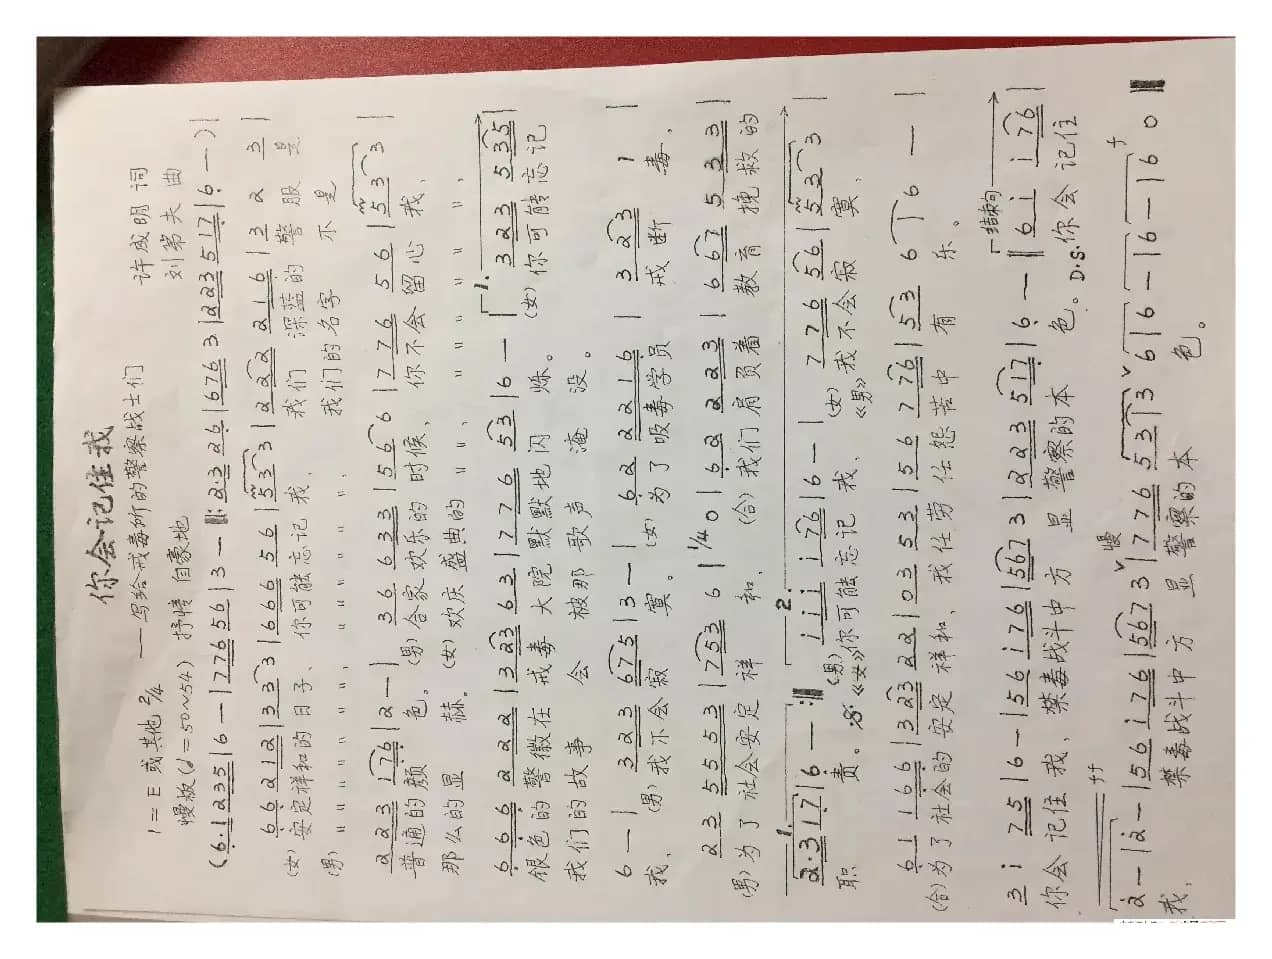 你会记住我
——写给戒毒所的警察战士们
1=E 或其他 2/4
许成明 词
慢板(♩=50~54) 抒情 自豪地
刘第夫 曲
(6·1 2 3 5 | 6 — | 7 7 6 5 6 | 3 — ‖: 2·3 2 6 | 6 7 6 3 | 2 2 3 5 1 7 | 6 — ) |
6 6 2 1 2 | 3 3 3 | 6 6 6 5 6 | 5 3 3 | 2 2 2 2 1 6 | 3 2 3 |
(女) 安定祥和的日子、 你可能忘记 我、 我们 深蓝的 警服 是
(男) 〃 〃 〃 〃 〃 〃、 〃 〃 〃 〃 〃 〃、 我们的名字 不是
2 2 3 1 7 6 | 2 — | 3 6 6 3 3 | 5 6 6 | 7 7 6 5 6 | 5 3 3 |
普通的 颜 色。 (男) 合家欢乐的 时候、 你不会留心 我、
那么的 显 赫。 (女) 欢庆盛典的 〃 〃、 〃 〃 〃 〃 〃 〃、
6 6 6 2 2 2 | 3 2 3 6 3 | 7 7 6 5 3 | 6 — | 1. 3 2 3 5 3 5 |
银色的 警徽在 戒毒 大院 默默地闪 烁。 (女) 你可能忘记
我们的 故事 会 被那 歌声 淹 没。
6 — | 3 2 3 6 7 5 | 3 — | 6 2 2 2 1 6 | 3 2 3 1 |
我、 (男) 我不会寂 寞。 (女) 为了吸毒学员 戒断 毒、
2 3 5 5 5 3 | 7 5 3 6 | 1/4 0 | 6 2 2 2 3 | 6 6 7 5 3 3 |
(男) 为了社会安定 祥 和、 (合) 我们肩负着 教育 挽救的
2·3 1 7 | 6 — :‖ 2. i i i i 7 6 | 6 — | 7 7 6 5 6 | 5 3 3 |
职 责。 (男)《女》你可能忘记 我、 (女)《男》我不会寂 寞、
6 1 1 6 6 | 3 2 3 2 2 | 0 3 5 3 | 5 6 7 7 6 | 5 3 6 | 6 — |
(合) 为了社会的 安定 祥和、 我任劳 任怨 苦中 有 乐。
3 i 7 5 | 6 — | 5 6 i 7 6 | 5 6 7 3 | 2 2 3 5 1 7 | 6 — ‖ 结束句 6 i i 7 6 |
你会 记住 我、 禁毒战斗中 方 显 警察的 本 色。 D.S. 你会 记住
2 — | 2 — | 5 6 i 7 6 | 5 6 7 3 | 慢 7 7 6 5 3 | 3 6 | 6 — | 6 — | 6 0 ‖
我、 禁毒战斗中 方 显 警察的 本 色。